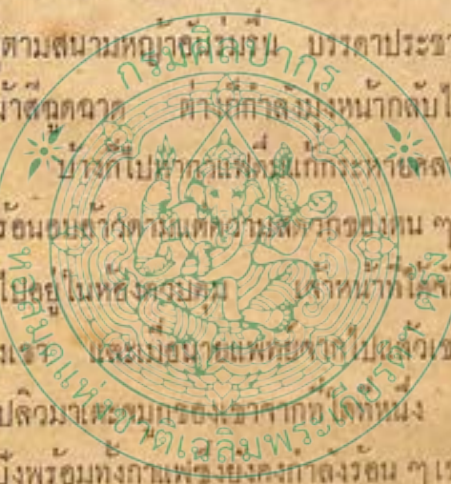 ตามสนามหญ้าอันร่มรื่น บรรดาประชา
ฉูดฉาด ต่างก็กำลังมุ่งหน้ากลับไ
บ้างก็ไปหากาแฟดื่มแก้กระหาย
ร้อนอบอ้าวตามแต่ความสดวกของตน ๆ
ไปอยู่ในห้องควบคุม เจ้าหน้าที่ได้
และเมื่อนายแพทย์จากไปแล้วเข
ปลิวมาเตะจมูกของเขาจากที่ใดที่หนึ่ง
พร้อมทั้งกาแฟซึ่งยังคงกำลังร้อน ๆ
กรมศิลปากร
หอสมุดแห่งชาติเฉลิมพระเกียรติ ตรัง